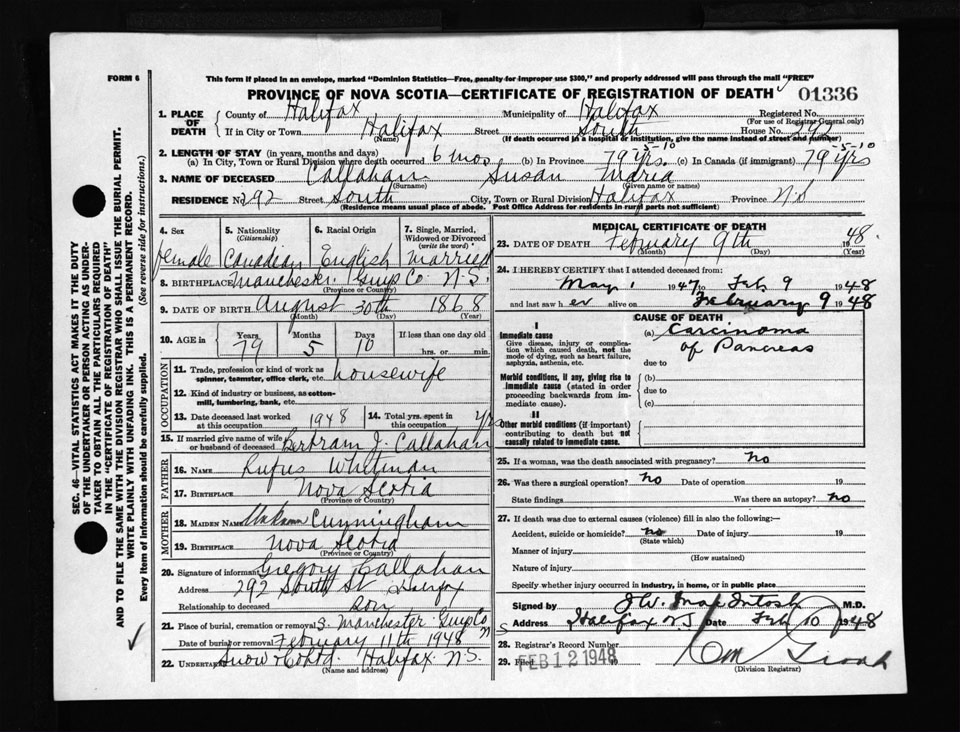 FORM 6
This form if placed in an envelope, marked "Dominion Statistics—Free, penalty for improper use $300," and properly addressed will pass through the mail "FREE"
PROVINCE OF NOVA SCOTIA—CERTIFICATE OF REGISTRATION OF DEATH 01336
1. PLACE OF DEATH County of Halifax Municipality of Halifax Registered No.
(For use of Registrar General only)
If in City or Town Halifax Street South House No. 292
(Name) (If death occurred in a hospital or institution, give the name instead of street and number)
2. LENGTH OF STAY (in years, months and days)
(a) In City, Town or Rural Division where death occurred 6 mos (b) In Province 79 yrs. -5-10 (c) In Canada (if immigrant) 79 yrs -5-10
3. NAME OF DECEASED Callahan Susan Maria
(Surname) (Given name or names)
RESIDENCE No. 292 Street South City, Town or Rural Division Halifax Province N.S
(Residence means usual place of abode. Post Office Address for residents in rural parts not sufficient)
4. Sex female
5. Nationality (Citizenship) Canadian
6. Racial Origin English
7. Single, Married, Widowed or Divorced (write the word) Married
8. BIRTHPLACE Manchester Guys Co N.S.
(Province or Country)
9. DATE OF BIRTH August 30th 1868
(Month) (Day) (Year)
10. AGE in Years 79 Months 5 Days 10 If less than one day old
hrs. or min.
OCCUPATION
11. Trade, profession or kind of work as spinner, teamster, office clerk, etc. housewife
12. Kind of industry or business, as cotton-mill, lumbering, bank, etc.
13. Date deceased last worked at this occupation 1948
14. Total yrs. spent in this occupation
15. If married give name of wife or husband of deceased Bertram J. Callahan
FATHER
16. NAME Rufus Whitman
17. BIRTHPLACE Nova Scotia
(Province or Country)
MOTHER
18. MAIDEN NAME Cunningham
19. BIRTHPLACE Nova Scotia
(Province or Country)
20. Signature of informant Gregory Callahan
Address 292 South St Halifax
Relationship to deceased son
21. Place of burial, cremation or removal S. Manchester Guys Co N
Date of burial or removal February 11th 1948
22. UNDERTAKER Snow & Co Ltd. Halifax N.S.
(Name and address)
MEDICAL CERTIFICATE OF DEATH
23. DATE OF DEATH February 9th 1948
(Month) (Day) (Year)
24. I HEREBY CERTIFY that I attended deceased from:
May 1 1947 to Feb 9 1948
and last saw her alive on February 9 1948
CAUSE OF DEATH
I
Immediate cause
Give disease, injury or complication which caused death, not the mode of dying, such as heart failure, asphyxia, asthenia, etc.
(a) Carcinoma of Pancreas
due to
Morbid conditions, if any, giving rise to immediate cause (stated in order proceeding backwards from immediate cause).
(b)
due to
(c)
II
Other morbid conditions (if important) contributing to death but not causally related to immediate cause.
25. If a woman, was the death associated with pregnancy? No
26. Was there a surgical operation? No Date of operation 19
State findings Was there an autopsy? no
27. If death was due to external causes (violence) fill in also the following:—
Accident, suicide or homicide? no Date of injury 19
(State which)
Manner of injury
(How sustained)
Nature of injury
Specify whether injury occurred in industry, in home, or in public place
Signed by J.W. MacIntosh M.D.
Address Halifax N.S Date Feb 10 1948
28. Registrar's Record Number
29. Filed FEB 12 1948
(Division Registrar)
SEC. 46—VITAL STATISTICS ACT MAKES IT THE DUTY
OF THE UNDERTAKER OR PERSON ACTING AS UNDER-
TAKER TO OBTAIN ALL THE PARTICULARS REQUIRED
IN THE "CERTIFICATE OF REGISTRATION OF DEATH"
AND TO FILE THE SAME WITH THE DIVISION REGISTRAR WHO SHALL ISSUE THE BURIAL PERMIT.
WRITE PLAINLY WITH UNFADING INK. THIS IS A PERMANENT RECORD.
Every item of information should be carefully supplied. (See reverse side for instructions.)